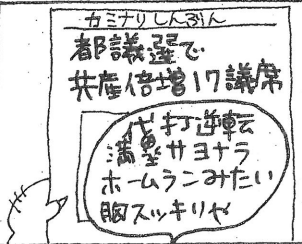 カミナリしんぶん
都議選で
共産倍増17議席
代打逆転
満塁サヨナラ
ホームランみたい
胸スッキリや